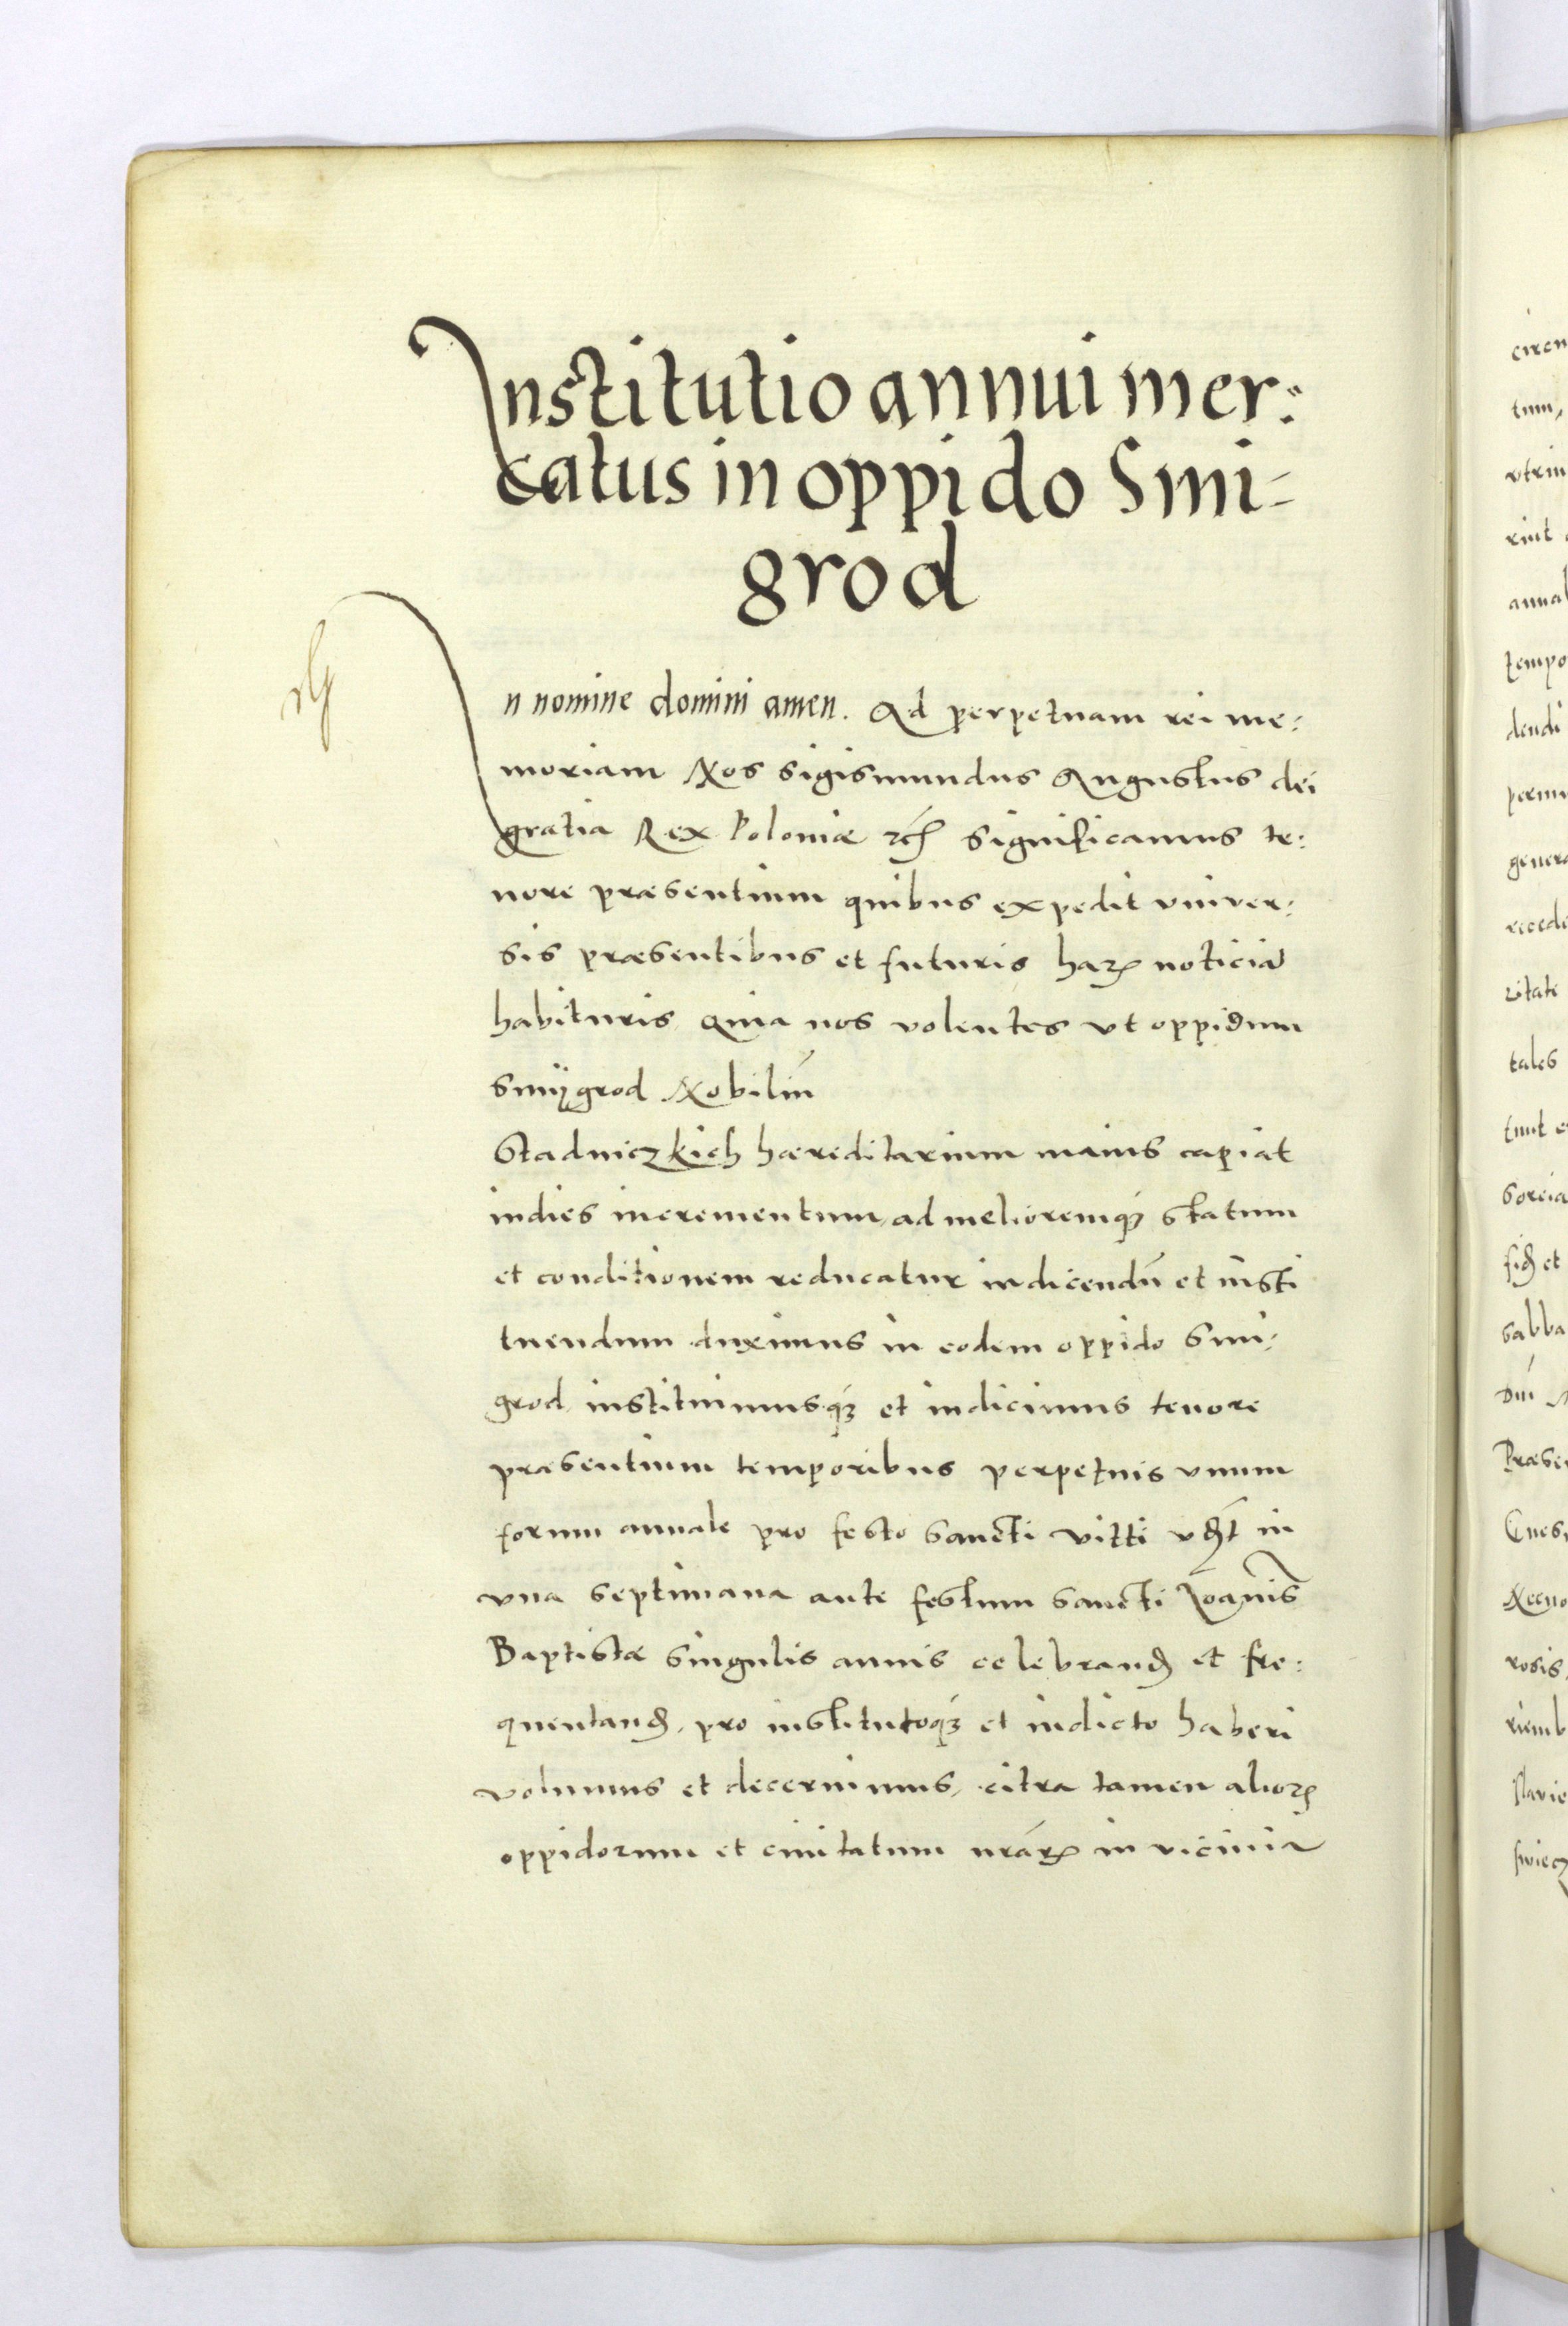 Institutio annui mer:
catus in oppido Smi-
grod
In nomine domini amen. Ad perpetuam rei me:
moriam Nos Sigismundus Augustus dei
gratia Rex Poloniæ etc̃ Significamus te:
nore præsentium quibus expedit vniver:
sis præsentibus et futuris harꝝ noticiã
habituris, Quia nos volentes vt oppidum
Smÿgrod Nobiliũ
Stadniczkich hæreditarium maius capiat
indies incrementum, ad melioremqꝫ statum
et conditionem reducatur indicendũ et insti
tuendum duximus in eodem oppido Smi-
grod, instituimusqꝫ et indicimus tenore
præsentium temporibus perpetuis vnum
forum annale pro festo Sancti Vitti vꝫt in
vna septimana ante festum Sancti Ioañis
Baptistæ Singulis annis celebrand̃ et fre:
quentand̃, pro institutoqꝫ et indicto haberi
volumus et decernimus, citra tamen aliorꝝ
oppidorum et civitatum nr̃arꝝ in vicinia
circu
tum,
vtrin
rint
annal
tempo
dendi
genera
recede
tales
et
sabba
Præse
rosis,